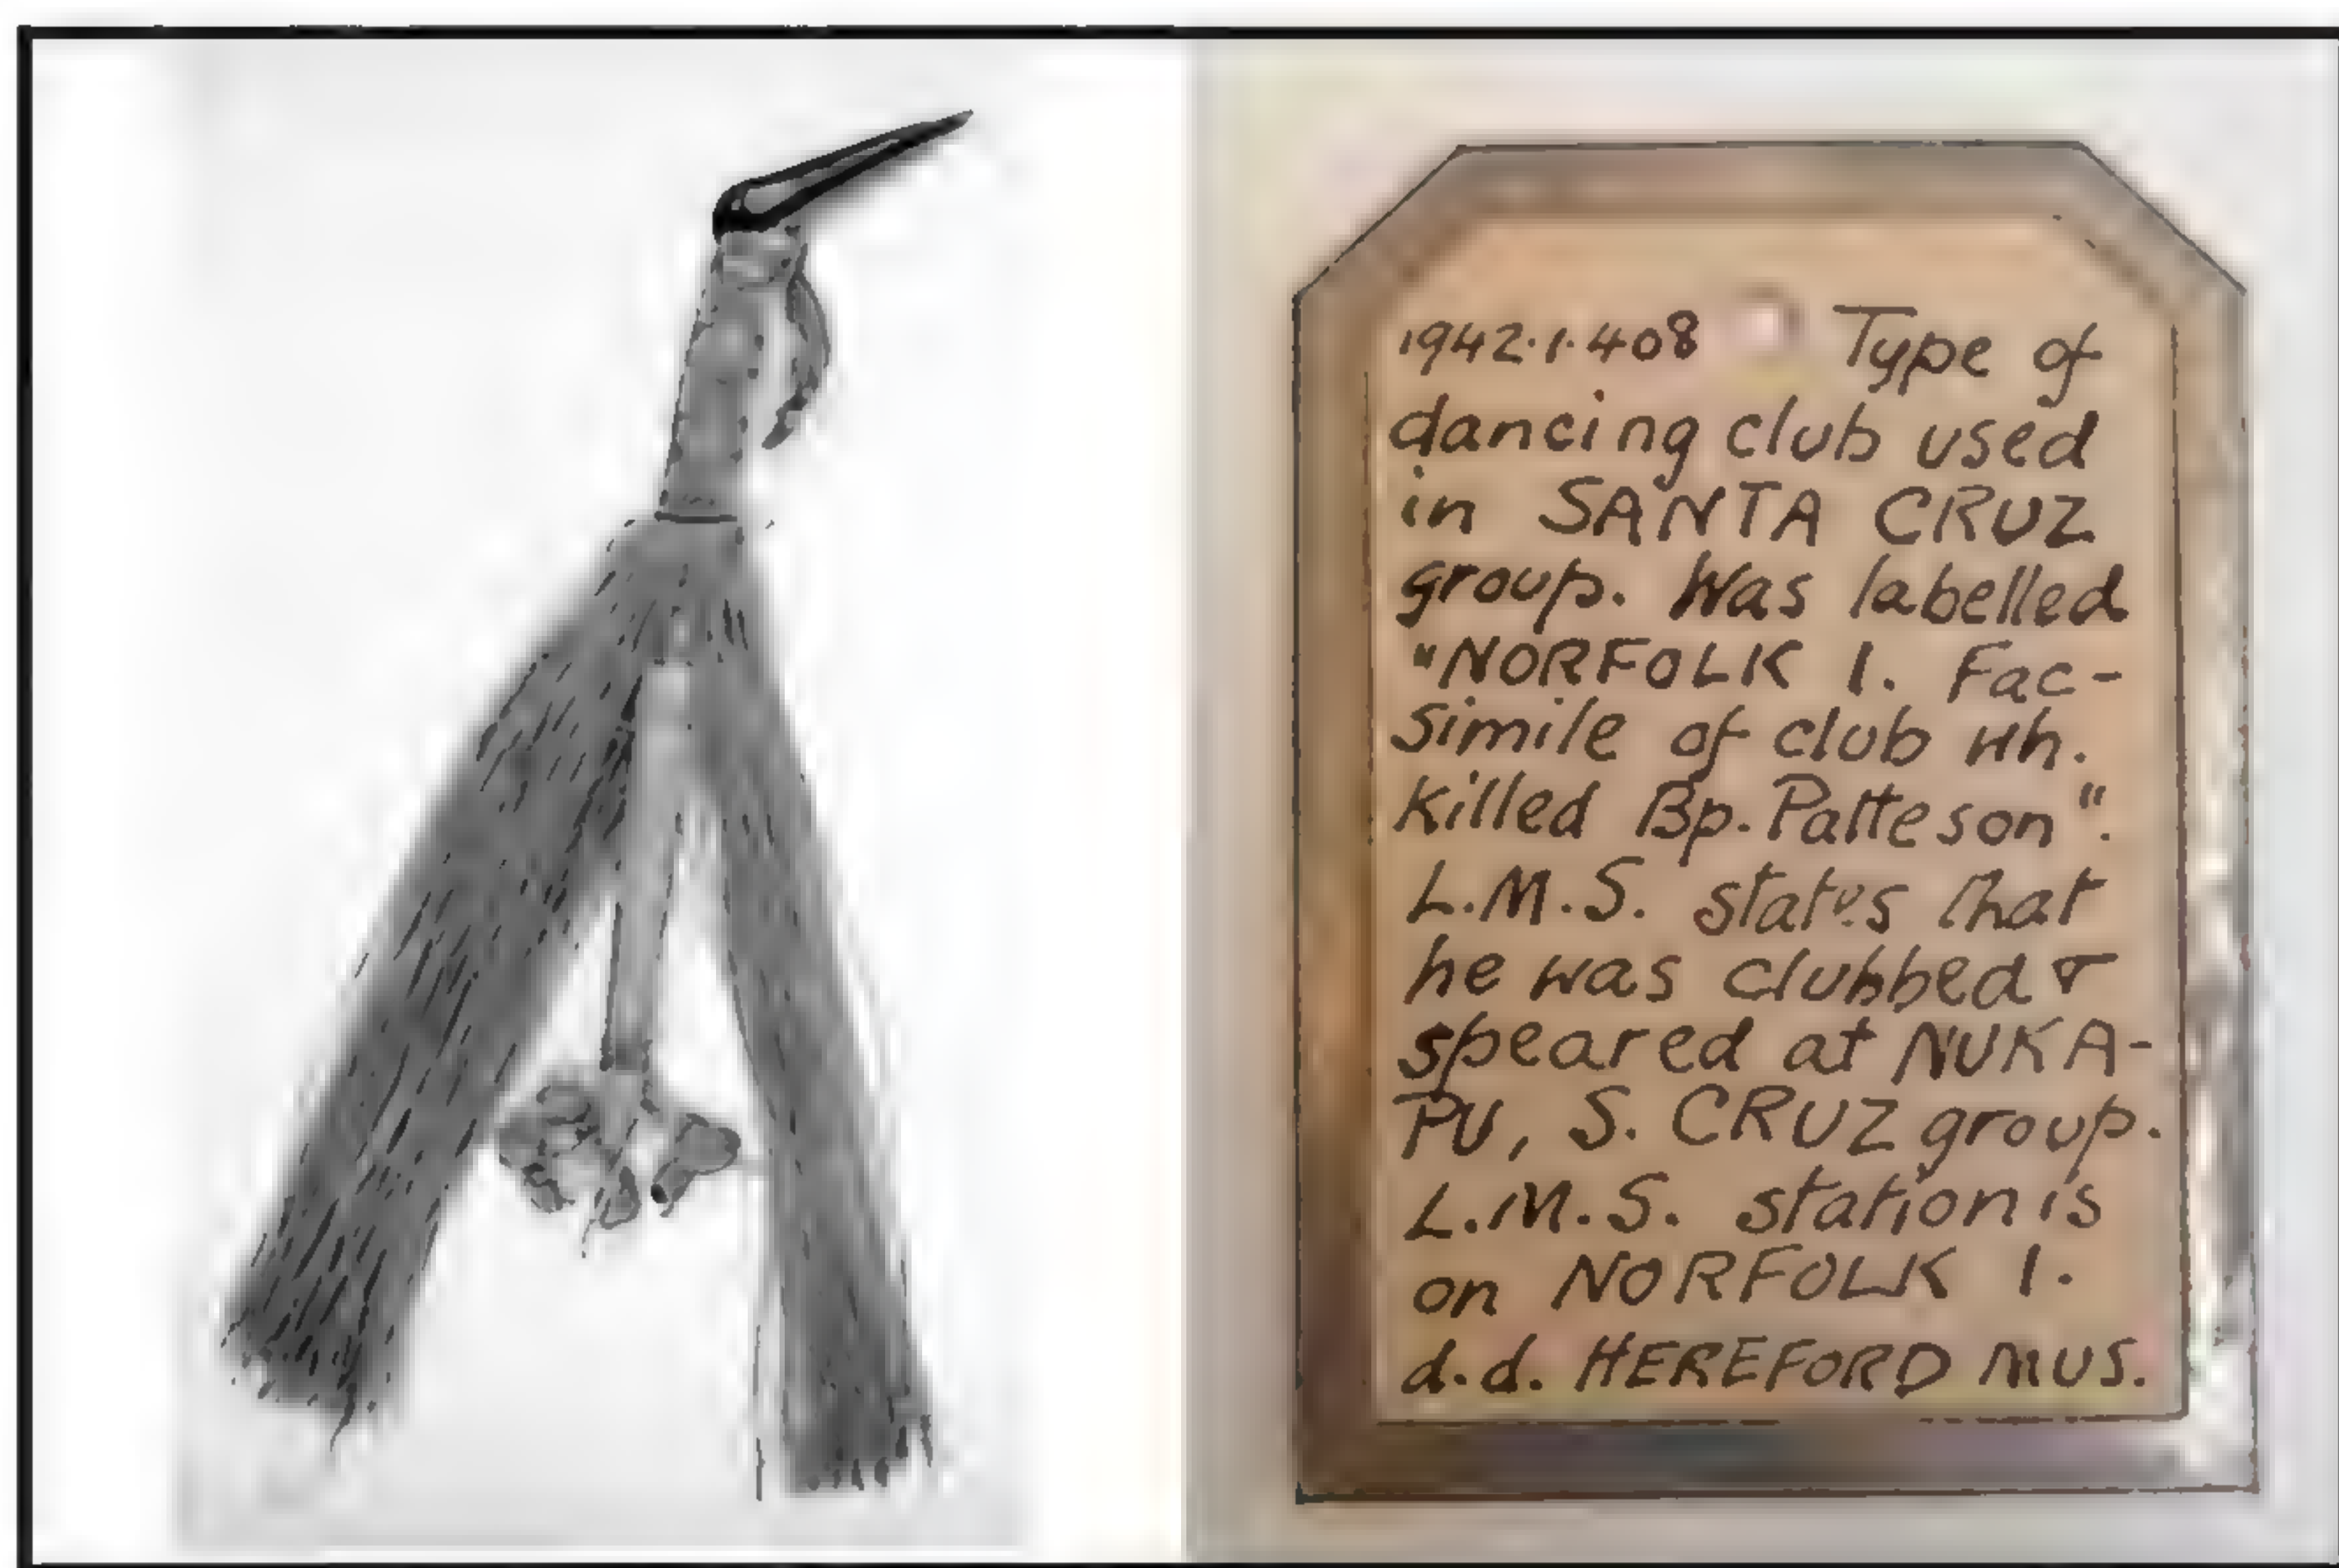 1942.1.408 Type of
dancing club used
in SANTA CRUZ
group. Was labelled
"NORFOLK I. Fac-
simile of club wh.
killed Bp. Patteson".
L.M.S. states that
he was clubbed &
speared at NUKA-
PU, S. CRUZ group.
L.M.S. station is
on NORFOLK I.
d.d. HEREFORD MUS.